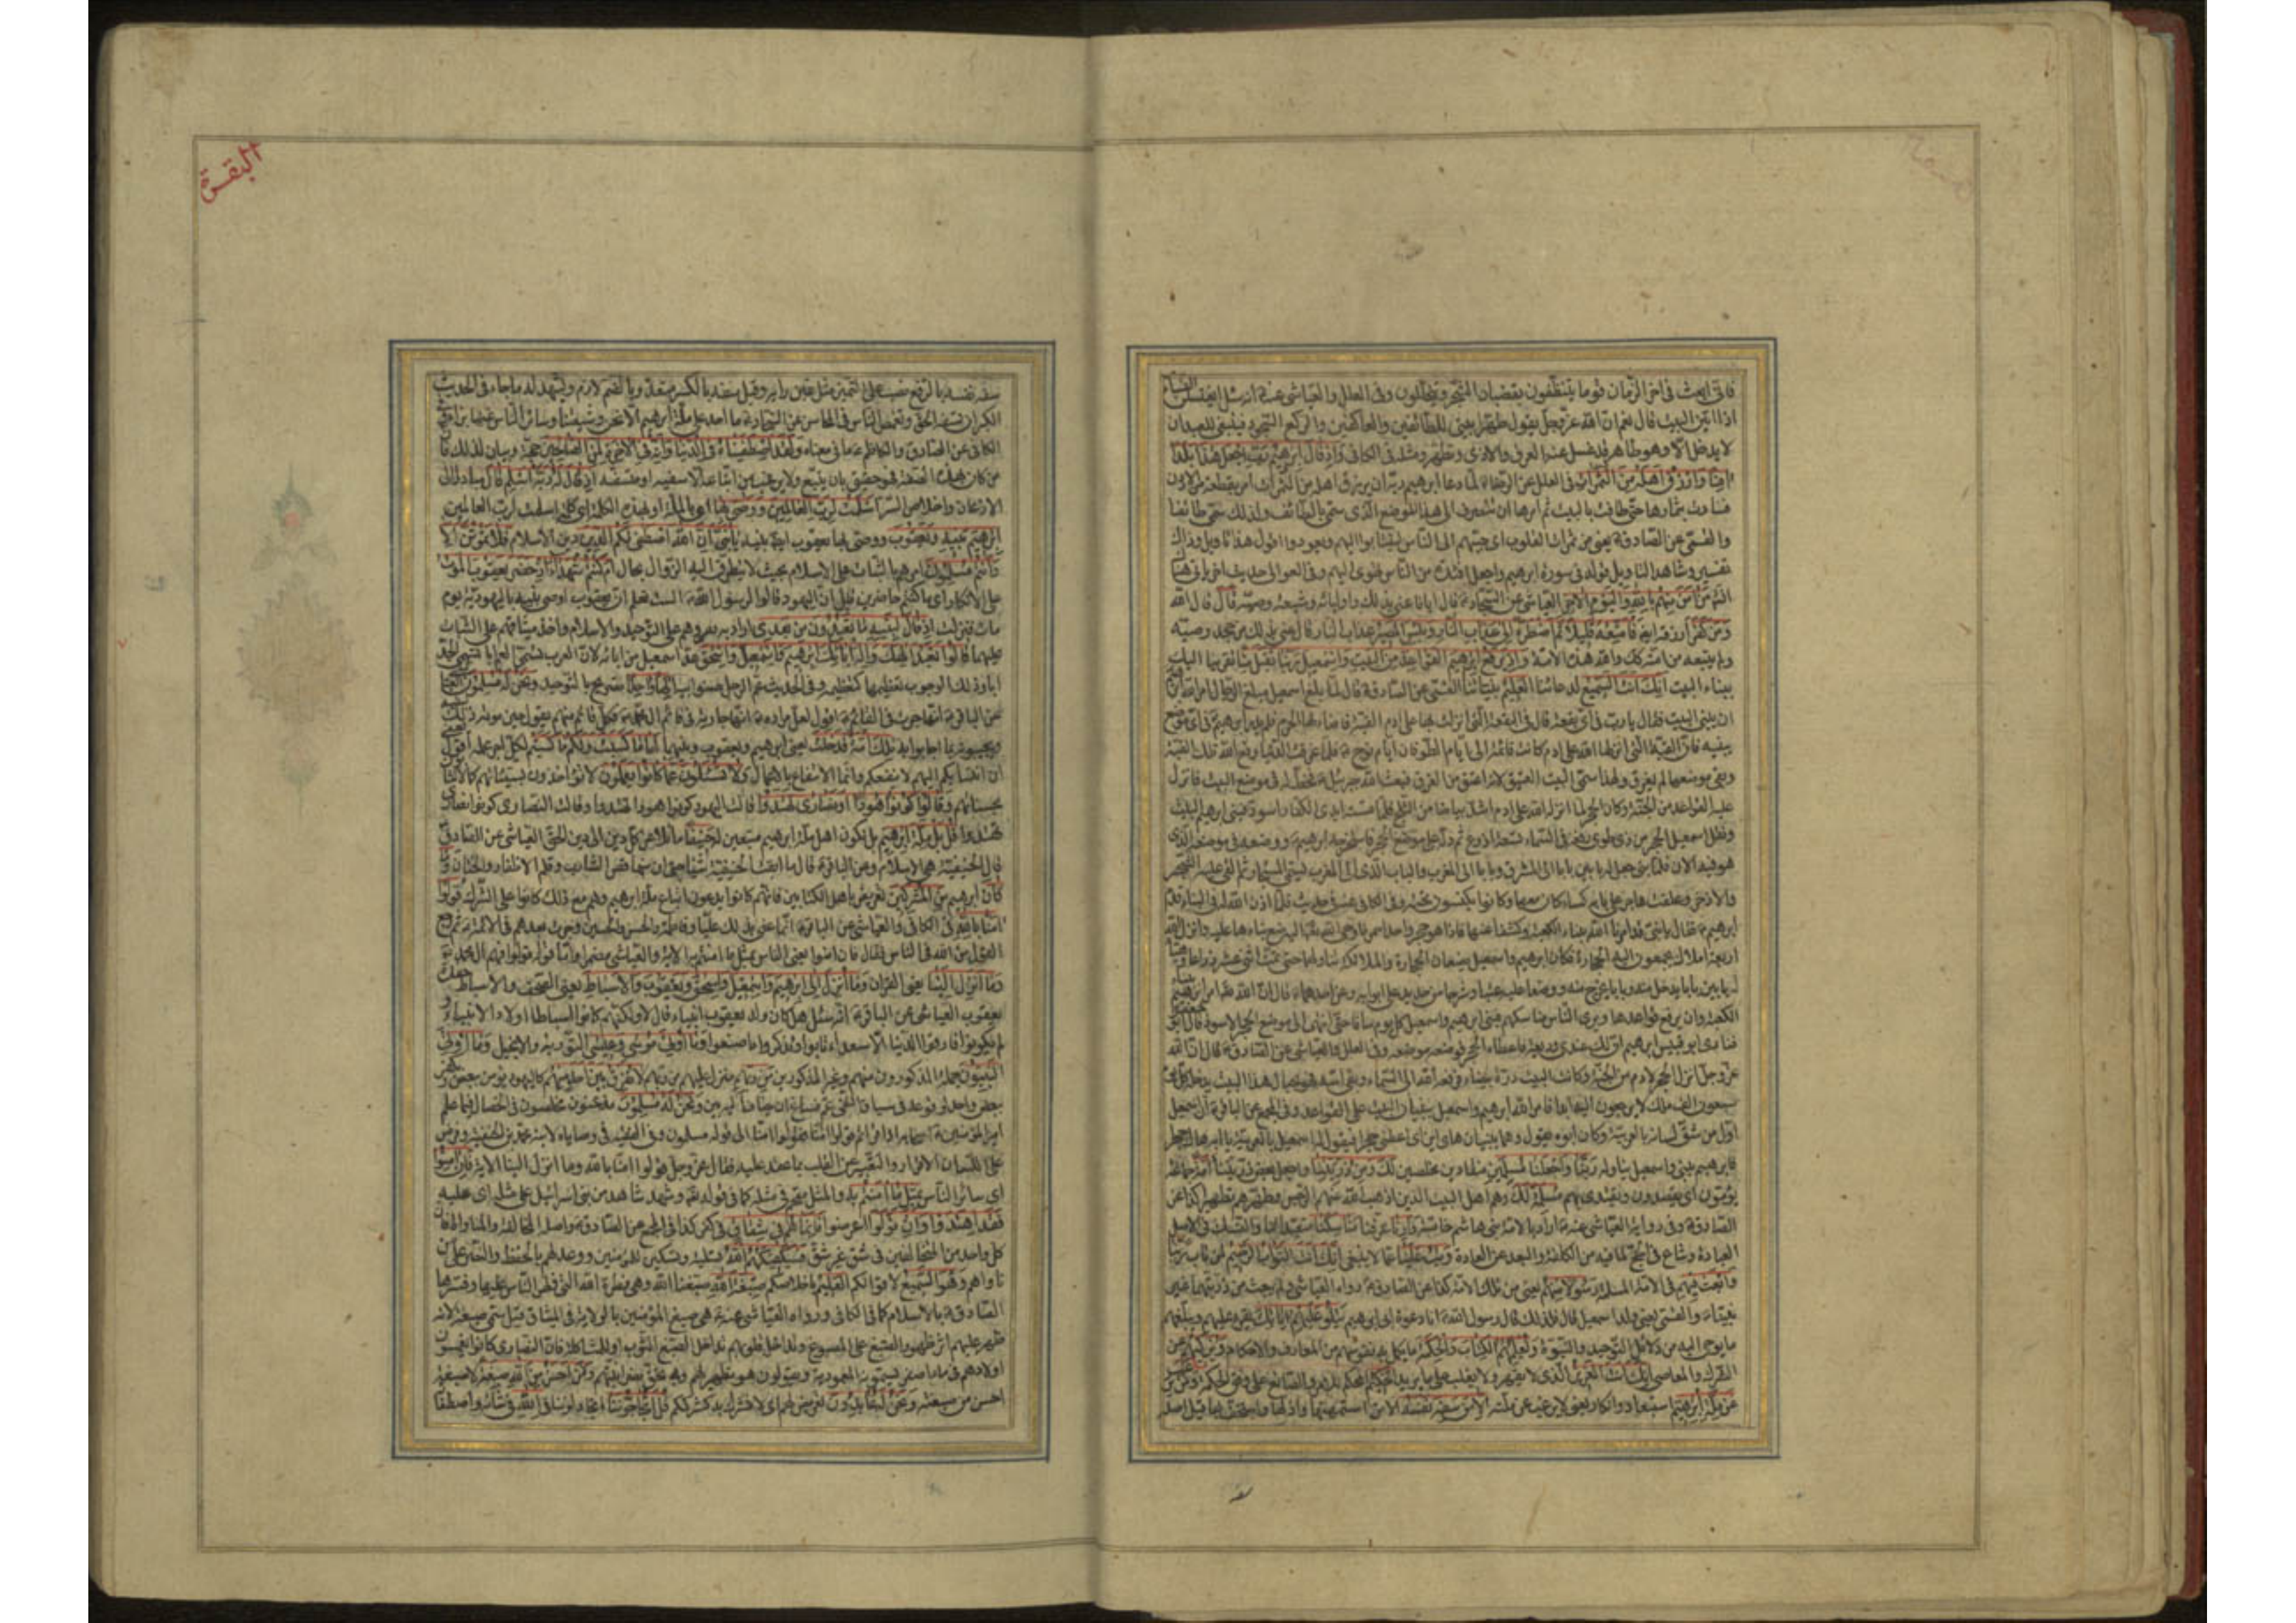 فانى ابعث فى اخر الزمان قوما يتنظفون بقضبان الشجر ويتخللون وفى العلل والعياشى عنه انه سئل ايغتسلن النساء
اذا اتين البيت قال نعم ان الله عز وجل يقول طهرا بيتى للطائفين والعاكفين والركع السجود فينبغى للعبد ان
لا يدخل الا وهو طاهر قد غسل عنه العرق والاذى وتطهر ومثله فى الكافى واذ قال ابرهيم رب اجعل هذا بلدا
امنا وارزق اهله من الثمرات فى العلل عن الرضا لما دعا ابرهيم ربه ان يرزق اهله من الثمرات امر بقطعة من الاردن
فسارت بثمارها حتى طافت بالبيت ثم امرها ان تنصرف الى هذا الموضع الذى سمى بالطائف ولذلك سمى طائفا
والقمى عن الصادق يعنى من ثمرات القلوب اى حببهم الى الناس ليثابوا اليهم ويعودوا اقول هذا تاويل وذاك
تفسير وشاهد التاويل قوله فى سورة ابرهيم واجعل افئدة من الناس تهوى اليهم وفى العوالى حديث اخر ياتى هناك
من امن منهم بالله واليوم الاخر العياشى عن السجاد قال ايانا عنى بذلك واولياءه وشيعة وصيه قال قال الله
ومن كفر فامتعه قليلا ثم اضطره الى عذاب النار وبئس المصير عذاب النار قال عنى بذلك من جحد وصيه
ولم يتبعه من امته كذلك والله هذه الامة واذ يرفع ابرهيم القواعد من البيت واسمعيل ربنا تقبل منا تقربنا اليك
ببناء البيت انك انت السميع لدعائنا العليم بنياتنا القمى عن الصادق قال لما بلغ اسمعيل مبلغ الرجال امر الله ابرهيم
ان يبنى البيت فقال يا رب فى اى بقعة قال فى البقعة التى انزلت بها على ادم القبة فاضاء لها الحرم فلم يدر ابرهيم فى اى موضع
يبنيه فان القبة التى انزلها الله على ادم كانت قائمة الى ايام الطوفان ايام نوح فلما غرقت الدنيا رفع الله تلك القبة
وبقى موضعها لم يغرق ولهذا سمى البيت العتيق لانه اعتق من الغرق فبعث الله جبرئيل فخط له فى موضع البيت فانزل
عليه القواعد من الجنة وكان الحجر لما انزله الله على ادم اشد بياضا من الثلج فلما مسته ايدى الكفار اسود فبنى ابرهيم البيت
ونقل اسمعيل الحجر من ذى طوى رفعه فى السماء تسعة اذرع ثم دله على موضع الحجر فاستخرجه ابرهيم ووضعه فى موضعه الذى
هو فيه الان فلما بنى جعل له بابين بابا الى المشرق وبابا الى المغرب والباب الذى الى المغرب يسمى المستجار ثم القى عليه الشجر
والاذخر وعلقت هاجر على بابه كساء كان معها وكانوا يكنسون تحته وفى الكافى عنه فى حديث فلما اذن الله له فى البناء قدم
ابرهيم فقال يا بنى قد امرنا الله ببناء الكعبة وكشفا عنها فاذا هو حجر واحد احمر فاوحى الله اليه ضع بناءها عليه وانزل الله
اربعة املاك يجمعون اليه الحجارة فكان ابرهيم واسمعيل يضعان الحجارة والملائكة تناولهما حتى تمت اثنى عشر ذراعا وهيا
له بابين بابا يدخل منه وبابا يخرج منه ووضعا عليه عتبا وشرجا من حديد على ابوابه وعن احدهما قال ان الله امر ابرهيم ببناء
الكعبة وان يرفع قواعدها ويرى الناس مناسكهم فبنى ابرهيم واسمعيل كل يوم سافا حتى انتهى الى موضع الحجر الاسود قال ابو جعفر
فنادى ابو قبيس ابرهيم ان لك عندى وديعة فاعطاه الحجر فوضعه موضعه وفى العلل والعياشى عن الصادق قال ان الله
عز وجل انزل الحجر لادم من الجنة وكانت البيت درة بيضاء فرفعه الله الى السماء وبقى اسه فهو بحيال هذا البيت يدخله كل يوم
سبعون الف ملك لا يرجعون اليه ابدا فامر الله ابرهيم واسمعيل ببنيان البيت على القواعد وفى المجمع عن الباقر ان اسمعيل
اول من شق لسانه بالعربية وكان ابوه يقول وهما يبنيان هاى ابن اى اعطنى حجرا فيقول له اسمعيل بالعربية يا ابه هاك حجرا
فابرهيم يبنى واسمعيل يناوله ربنا واجعلنا مسلمين منقادين مخلصين لك ومن ذريتنا واجعل بعض ذريتنا امة جماعة
يؤمون اى يقصدون ويقتدى بهم مسلمة لك وهم اهل البيت الذين اذهب الله عنهم الرجس وطهرهم تطهيرا كذا عن
الصادق وفى رواية العياشى عنه اراد بالامة بنى هاشم خاصة وارنا عرفنا مناسكنا متعبداتنا والنسك فى الاصل
العبادة وشاع فى الحج لما فيه من الكلفة والبعد عن العادة وتب علينا عما لا ينبغى انك انت التواب الرحيم لمن تاب ربنا
وابعث فيهم فى الامة المسلمة رسولا منهم يعنى من تلك الامة كذا عن الصادق رواه العياشى ولم يبعث من ذريتهما غير
نبينا والقمى يعنى ولد اسمعيل قال فلذلك قال رسول الله انا دعوة ابى ابرهيم يتلو عليهم اياتك يقرء عليهم ويبلغهم
ما يوحى اليه من دلائل التوحيد والنبوة ويعلمهم الكتاب والحكمة ما يكمل به نفوسهم من المعارف والاحكام ويزكيهم عن
الشرك والمعاصى انك انت العزيز الذى لا يقهر ولا يغلب على ما يريد الحكيم المحكم لامره والصانع على وفق الحكمة ومن يرغب
عن ملة ابرهيم استبعاد وانكار يعنى لا يرغب عن ملته الا من سفه نفسه الا من استمهنها واذلها واستخف بها قيل اصله
البقرة
سفه نفسه بالرفع نصب على التميز مثل غبن رايه وقيل سفه بالكسر متعد وبالضم لازم ويشهد له ما جاء فى الحديث
الكبر ان تسفه الحق وتغمص الناس فى المحاسن عن السجاد ما احد على ملة ابرهيم الا نحن وشيعتنا وسائر الناس منها براء وفى
الكافى عن الصادق والكاظم ما فى معناه ولقد اصطفيناه فى الدنيا وانه فى الاخرة لمن الصالحين حجة وبيان لذلك فان
من كان بهذه الصفة فهو حقيق بان يتبع ولا يرغب عن اتباعه الا سفيه او متسفه اذ قال له ربه اسلم قال مبادرا الى
الاذعان واخلاص السر اسلمت لرب العالمين ووصى بها اى بالملة او بهذه الكلمة اى كلمة اسلمت لرب العالمين
ابرهيم بنيه ويعقوب ووصى بها يعقوب ايضا بنيه يا بنى ان الله اصطفى لكم الدين دين الاسلام فلا تموتن الا
وانتم مسلمون امرهم بالثبات على الاسلام بحيث لا يتطرق اليه الزوال بحال ام كنتم شهداء اذ حضر يعقوب الموت
على الانكار اى ما كنتم حاضرين قيل ان اليهود قالوا لرسول الله الست تعلم ان يعقوب اوصى بنيه باليهودية يوم
مات فنزلت اذ قال لبنيه ما تعبدون من بعدى اراد به تقريرهم على التوحيد والاسلام واخذ ميثاقهم على الثبات
عليهما قالوا نعبد الهك واله ابائك ابرهيم واسمعيل واسحق عد اسمعيل من ابائه لان العرب تسمى العم ابا كتسمى الجد
ابا وذلك لوجوب تعظيمهما كتعظيمه وفى الحديث عم الرجل صنو ابيه الها واحدا تصريح بالتوحيد ونحن له مسلمون العياشى
عن الباقر انها جرت فى القائم اقول لعل مراده انها جارية فى قائم ال محمد فكل قائم منهم يقول حين موته ذلك لبنيه
ويجيبونه بما اجابوا به تلك امة قد خلت يعنى ابرهيم ويعقوب وبنيهما لها ما كسبت ولكم ما كسبتم لكل اجر عمله اقول
ان انتسابكم اليهم لا ينفعكم وانما الانتفاع بالاعمال ولا تسئلون عما كانوا يعملون لا تؤاخذون بسيئاتهم كما لا تثابون
بحسناتهم وقالوا كونوا هودا او نصارى تهتدوا قالت اليهود كونوا هودا تهتدوا وقالت النصارى كونوا نصارى
تهتدوا قل بل ملة ابرهيم بل نكون اهل ملة ابرهيم متبعين له حنيفا مائلا عن كل دين الى دين الحق العياشى عن الصادق
قال الحنيفية هى الاسلام وعن الباقر قال ما ابقت الحنيفية شيئا حتى ان منها قص الشارب وقلم الاظفار والختان وما
كان ابرهيم من المشركين تعريض باهل الكتابين فانهم كانوا يدعون اتباع ملة ابرهيم وهم مع ذلك كانوا على الشرك قولوا
امنا بالله فى الكافى والعياشى عن الباقر انما عنى بذلك عليا وفاطمة والحسن والحسين وجرت بعدهم فى الائمة ثم رجع
القول من الله فى الناس فقال فان امنوا يعنى الناس بمثل ما امنتم به الاية والعياشى مضمرا واما قوله قولوا فهم ال محمد
وما انزل الينا يعنى القران وما انزل الى ابرهيم واسمعيل واسحق ويعقوب والاسباط يعنى الصحف والاسباط حفدة
يعقوب العياشى عن الباقر انه سئل هل كان ولد يعقوب انبياء قال لا ولكنهم كانوا اسباطا اولاد الانبياء و
لم يكونوا فارقوا الدنيا الا سعداء تابوا وتذكروا ما صنعوا وما اوتى موسى وعيسى التورية والانجيل وما اوتى
النبيون جملة المذكورون منهم وغير المذكورين من ربهم منزل عليهم من ربهم لا نفرق بين احد منهم كاليهود نؤمن ببعض ونكفر
ببعض واحد لوقوعه فى سياق النفى عم فساغ ان يضاف اليه بين ونحن له مسلمون مذعنون مخلصون فى الخصال فيما علم
امير المؤمنين اصحابه اذا قراتم قولوا امنا فقولوا امنا الى قوله مسلمون وفى الفقيه فى وصاياه لابنه محمد بن الحنفية وفرض
على اللسان الاقرار والتعبير عن القلب بما عقد عليه فقال عز وجل قولوا امنا بالله وما انزل الينا الاية فان امنوا
اى سائر الناس بمثل ما امنتم به والمثل مقحم فى مثله كما فى قوله وشهد شاهد من بنى اسرائيل على مثله اى عليه
فقد اهتدوا وان تولوا اعرضوا فانما هم فى شقاق فى كفر كذا فى المجمع عن الصادق واصله المخالفة والمناواة فان
كل واحد من المتخالفين فى شق غير شق فسيكفيكهم الله تسلية وتسكين للمؤمنين ووعد لهم بالحفظ والنصر على من
ناواهم وهو السميع لاقوالكم العليم باخلاصكم صبغة الله صبغنا الله وهى فطرة الله التى فطر الناس عليها وفسرها
الصادق بالاسلام كما فى الكافى ورواه العياشى عنه هى صبغ المؤمنين بالولاية فى الميثاق قيل سمى صبغة لانه
ظهر عليهم اثره ظهور الصبغ على المصبوغ وتداخل قلوبهم تداخل الصبغ الثوب او للمشاكلة فان النصارى كانوا يغمسون
اولادهم فى ماء اصفر يسمونه المعمودية ويقولون هو تطهير لهم وبه تحق نصرانيتهم ومن احسن من الله صبغة لا صبغة
احسن من صبغته ونحن له عابدون تعريض بهم اى لا نشرك به كشرككم قل اتحاجوننا اتجادلوننا فى الله فى شانه واصطفائه